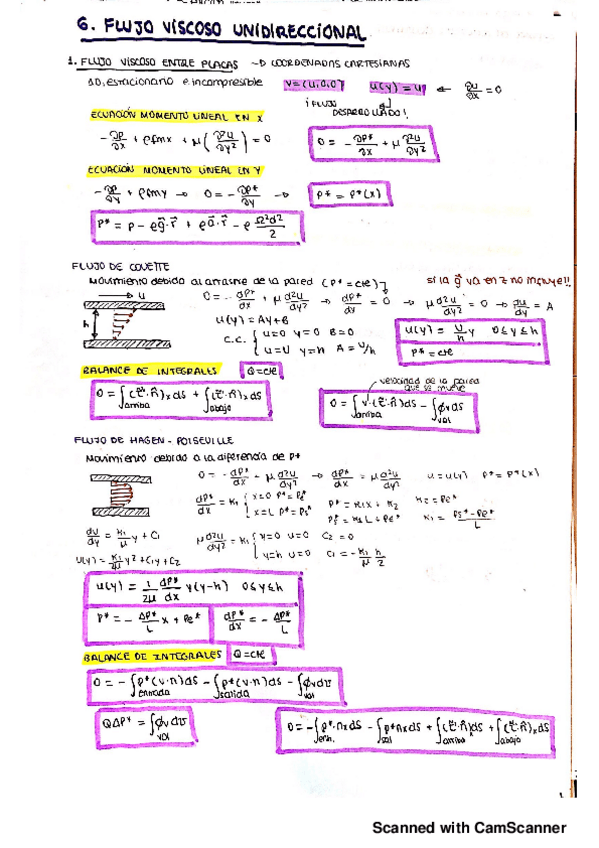 6. FLUJO VISCOSO UNIDIRECCIONAL
1. FLUJO VISCOSO ENTRE PLACAS → COORDENADAS CARTESIANAS
1D, estacionario e incompresible V=(u,0,0) u(y)=u ← ∂u/∂x = 0
¡FLUJO DESARROLLADO!
ECUACIÓN MOMENTO LINEAL EN X
-∂P/∂x + ρfmx + μ(∂²u/∂y²) = 0 0 = -∂P*/∂x + μ ∂²u/∂y²
ECUACIÓN MOMENTO LINEAL EN Y
-∂P/∂y + ρfmy → 0 = -∂P*/∂y → P* = P*(x)
P* = P - ρg⃗·r⃗ + ρa⃗·r⃗ - ρ Ω²d²/2
FLUJO DE COUETTE
Movimiento debido al arrastre de la pared (P* = cte) si la g⃗ va en z no influye!!
→ U 0 = -dP*/dx + μ d²u/dy² → dP*/dx = 0 → μ d²u/dy² = 0 → du/dy = A
h u(y) = Ay+B
C.C. { u=0 y=0 B=0 u(y) = U/h y 0≤y≤h
u=U y=h A=U/h P* = cte
BALANCE DE INTEGRALES Q=cte
velocidad de la pared que se mueve
0 = ∫arriba (τ·n)x ds + ∫abajo (τ·n)x ds 0 = ∫arriba v·(τ·n)ds - ∫vol ϕv dv
FLUJO DE HAGEN-POISEVILLE
Movimiento debido a la diferencia de P*
0 = -dP*/dx + μ d²u/dy² → dP*/dx = μ d²u/dy² u=u(y) P*=P*(x)
dP*/dx = K1 { x=0 P*=Pe* P* = K1x + K2 K2=Pe*
x=L P*=Ps* Ps* = K1L+Pe* K1 = (Ps*-Pe*)/L
du/dy = K1/μ y + C1 μ d²u/dy² = K1 { y=0 u=0 C2=0
u(y) = K1/2μ y² + C1y + C2 y=h u=0 C1 = -K1/μ h/2
u(y) = 1/2μ dP*/dx y(y-h) 0≤y≤h
P* = -ΔP*/L x + Pe* dP*/dx = -ΔP*/L
BALANCE DE INTEGRALES Q=cte
0 = -∫entrada P*(v·n)ds - ∫salida P*(v·n)ds - ∫vol ϕv dv
QΔP* = ∫vol ϕv dv 0 = -∫entr. P*·nx ds - ∫sal P*nx ds + ∫arriba (τ·n)x ds + ∫abajo (τ·n)x ds
Scanned with CamScanner